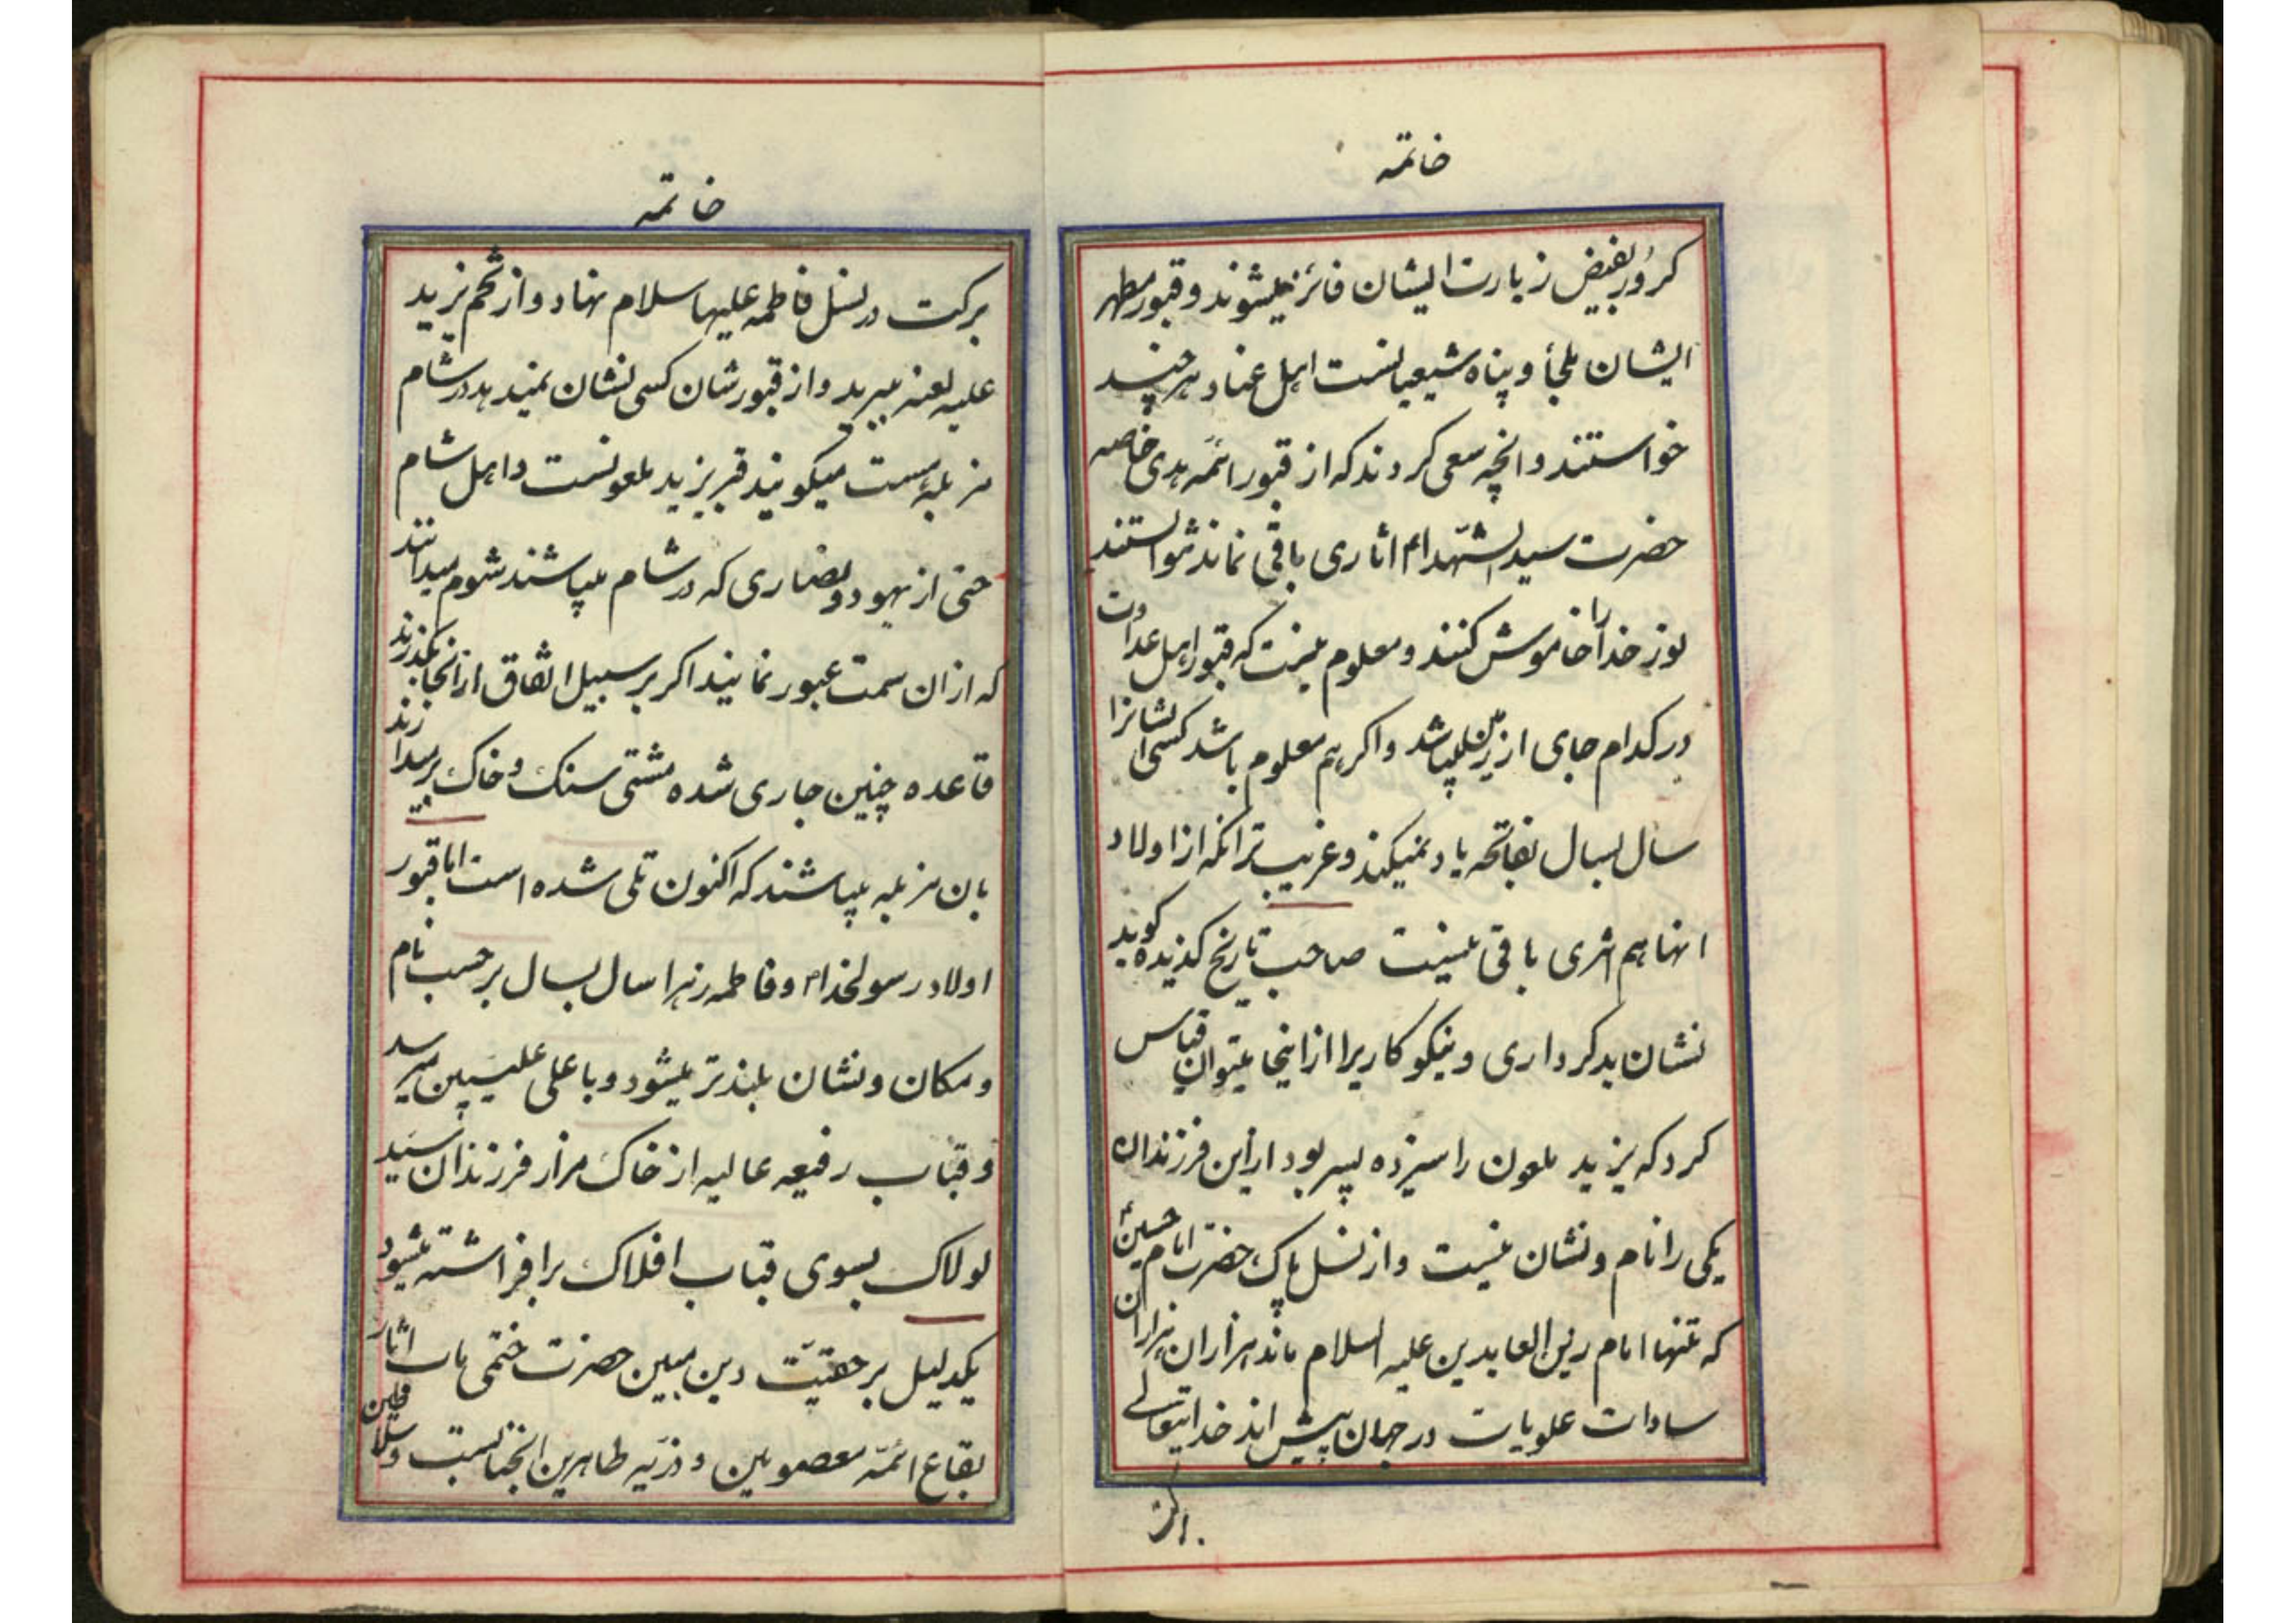 خاتمه
کرور بفیض زیارت ایشان فائز میشوند و قبور مطهر
ایشان ملجأ و پناه شیعیانست اهل عناد هر چند
خواستند و انچه سعی کردند که از قبور ائمه هدی خاصه
حضرت سید الشهدا ع اثاری باقی نماند نتوانستند
نور خدا را خاموش کنند و معلوم نیست که قبور اهل عداوت
در کدام جای از زمین میباشد و اگر هم معلوم باشد کسی ایشانرا
سال بسال بفاتحه یاد نمیکند و غریب تر انکه از اولاد
انها هم اثری باقی نیست صاحب تاریخ کزیده کوید
نشان بدکرداری و نیکو کاریرا از اینجا میتوان قیاس
کرد که یزید ملعون را سیزده پسر بود از این فرزندان
یکی را نام و نشان نیست و از نسل پاک حضرت امام حسین ع
که تنها امام زین العابدین علیه السلام ماند هزاران هزاران
سادات علویات در جهان بیش اند خدایتعالی
خاتمه
برکت در نسل فاطمه علیها سلام نهاد و از تخم یزید
علیه لعنه ببرید و از قبورشان کسی نشان نمیدهد در شام
مزبلهٔ هست میکویند قبر یزید ملعونست و اهل شام
حتی از یهود و نصاری که در شام میباشند شوم میدانند
که از ان سمت عبور نمایند اکر بر سبیل اتفاق از انجا بگذرند
قاعده چنین جاری شده مشتی سنک و خاک بر میدارند
بان مزبله میپاشند که اکنون تلی شده است اما قبور
اولاد رسولخدا ص و فاطمه زهرا سال بسال بر حسب نام
و مکان و نشان بلندتر میشود و با علی علیین میرسد
و قباب رفیعه عالیه از خاک مزار فرزندان سید
لولاک بسوی قباب افلاک برافراشته میشود
یکدلیل بر حقیّت دین مبین حضرت ختمی ماب اثار
بقاع ائمّه معصومین و ذرّیه طاهرین انجنابست و سلاطین